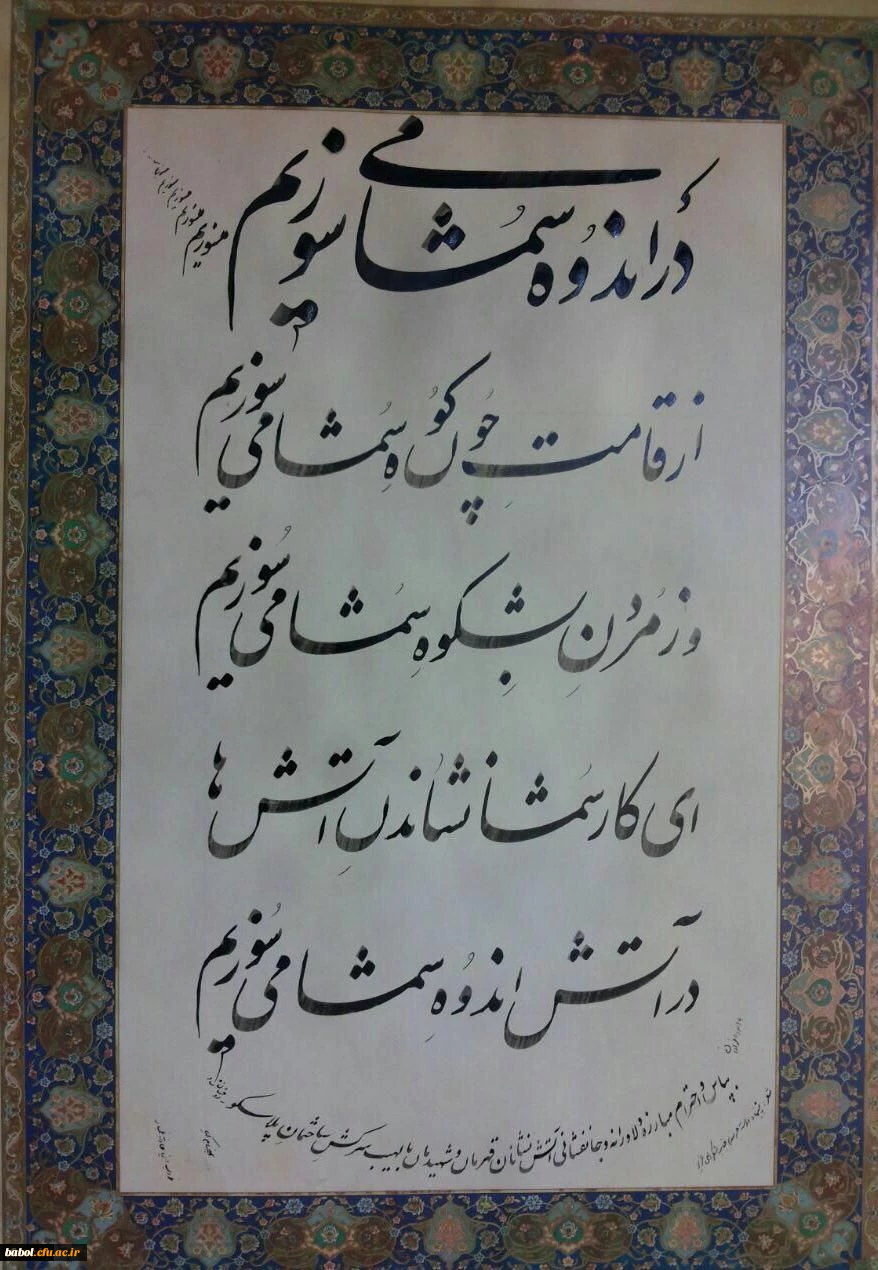 در اندوه شما می سوزیم
می سوزیم
از قامتِ چون کوهِ شما می سوزیم
وز مردنِ بشکوهِ شما می سوزیم
ای کار شما نشاندنِ آتش ها
در آتش اندوهِ شما می سوزیم
بپاس و احترام مبارزه دلاورانه و جانفشانی آتش نشانان قهرمان و شهیدمان با لهیب سرکش ساختمان پلاسکو
babol.cfu.ac.ir